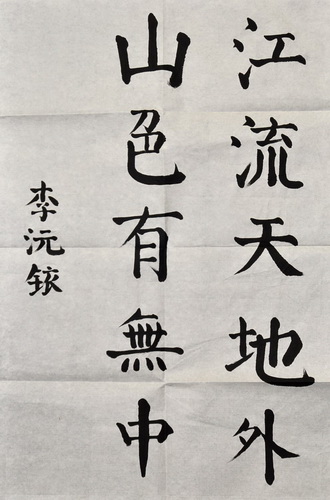 江流天地外
山色有無中
李沅銥